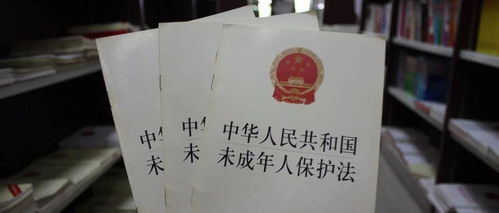 中华人民共和国
未成年人保护法
中华
未成年
中华人
未成年